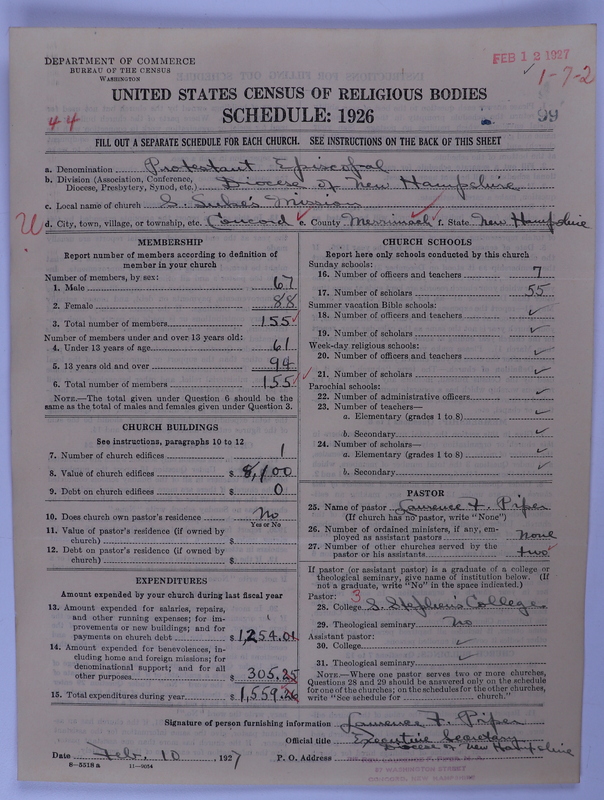 DEPARTMENT OF COMMERCE
BUREAU OF THE CENSUS
WASHINGTON
FEB 12 1927
1-7-2
UNITED STATES CENSUS OF RELIGIOUS BODIES
SCHEDULE: 1926
44
99
FILL OUT A SEPARATE SCHEDULE FOR EACH CHURCH. SEE INSTRUCTIONS ON THE BACK OF THIS SHEET
a. Denomination Protestant Episcopal
b. Division (Association, Conference, Diocese, Presbytery, Synod, etc.) Diocese of New Hampshire
c. Local name of church S. Luke's Mission
d. City, town, village, or township, etc. Concord e. County Merrimack f. State New Hampshire
MEMBERSHIP
Report number of members according to definition of
member in your church
Number of members, by sex:
1. Male 67
2. Female 88
3. Total number of members 155
Number of members under and over 13 years old:
4. Under 13 years of age 61
5. 13 years old and over 94
6. Total number of members 155
NOTE.—The total given under Question 6 should be the
same as the total of males and females given under Question 3.
CHURCH BUILDINGS
See instructions, paragraphs 10 to 12
7. Number of church edifices 1
8. Value of church edifices $ 8,100
9. Debt on church edifices $ 0
10. Does church own pastor's residence No
Yes or No
11. Value of pastor's residence (if owned by
church) $
12. Debt on pastor's residence (if owned by
church) $
EXPENDITURES
Amount expended by your church during last fiscal year
13. Amount expended for salaries, repairs,
and other running expenses; for im-
provements or new buildings; and for
payments on church debt $ 1,254.01
14. Amount expended for benevolences, in-
cluding home and foreign missions; for
denominational support; and for all
other purposes $ 305.25
15. Total expenditures during year $ 1,559.26
CHURCH SCHOOLS
Report here only schools conducted by this church
Sunday schools:
16. Number of officers and teachers 7
17. Number of scholars 55
Summer vacation Bible schools:
18. Number of officers and teachers ✓
19. Number of scholars ✓
Week-day religious schools:
20. Number of officers and teachers ✓
21. Number of scholars ✓
Parochial schools:
22. Number of administrative officers ✓
23. Number of teachers—
a. Elementary (grades 1 to 8) ✓
b. Secondary ✓
24. Number of scholars—
a. Elementary (grades 1 to 8) ✓
b. Secondary ✓
PASTOR
25. Name of pastor Laurence F. Piper
(If church has no pastor, write "None")
26. Number of ordained ministers, if any, em-
ployed as assistant pastors none
27. Number of other churches served by the
pastor or his assistants two
If pastor (or assistant pastor) is a graduate of a college or
theological seminary, give name of institution below. (If
not a graduate, write "No" in the space indicated.)
Pastor: 3
28. College S. Stephen's College
29. Theological seminary No
Assistant pastor:
30. College ✓
31. Theological seminary ✓
NOTE.—Where one pastor serves two or more churches,
Questions 28 and 29 should be answered only on the schedule
for one of the churches; on the schedules for the other churches,
write "See schedule for church."
Signature of person furnishing information Laurence F. Piper
Official title Executive Secretary
Diocese of New Hampshire
Date Feb. 10, 1927 P. O. Address
8—5318 a 11—9054